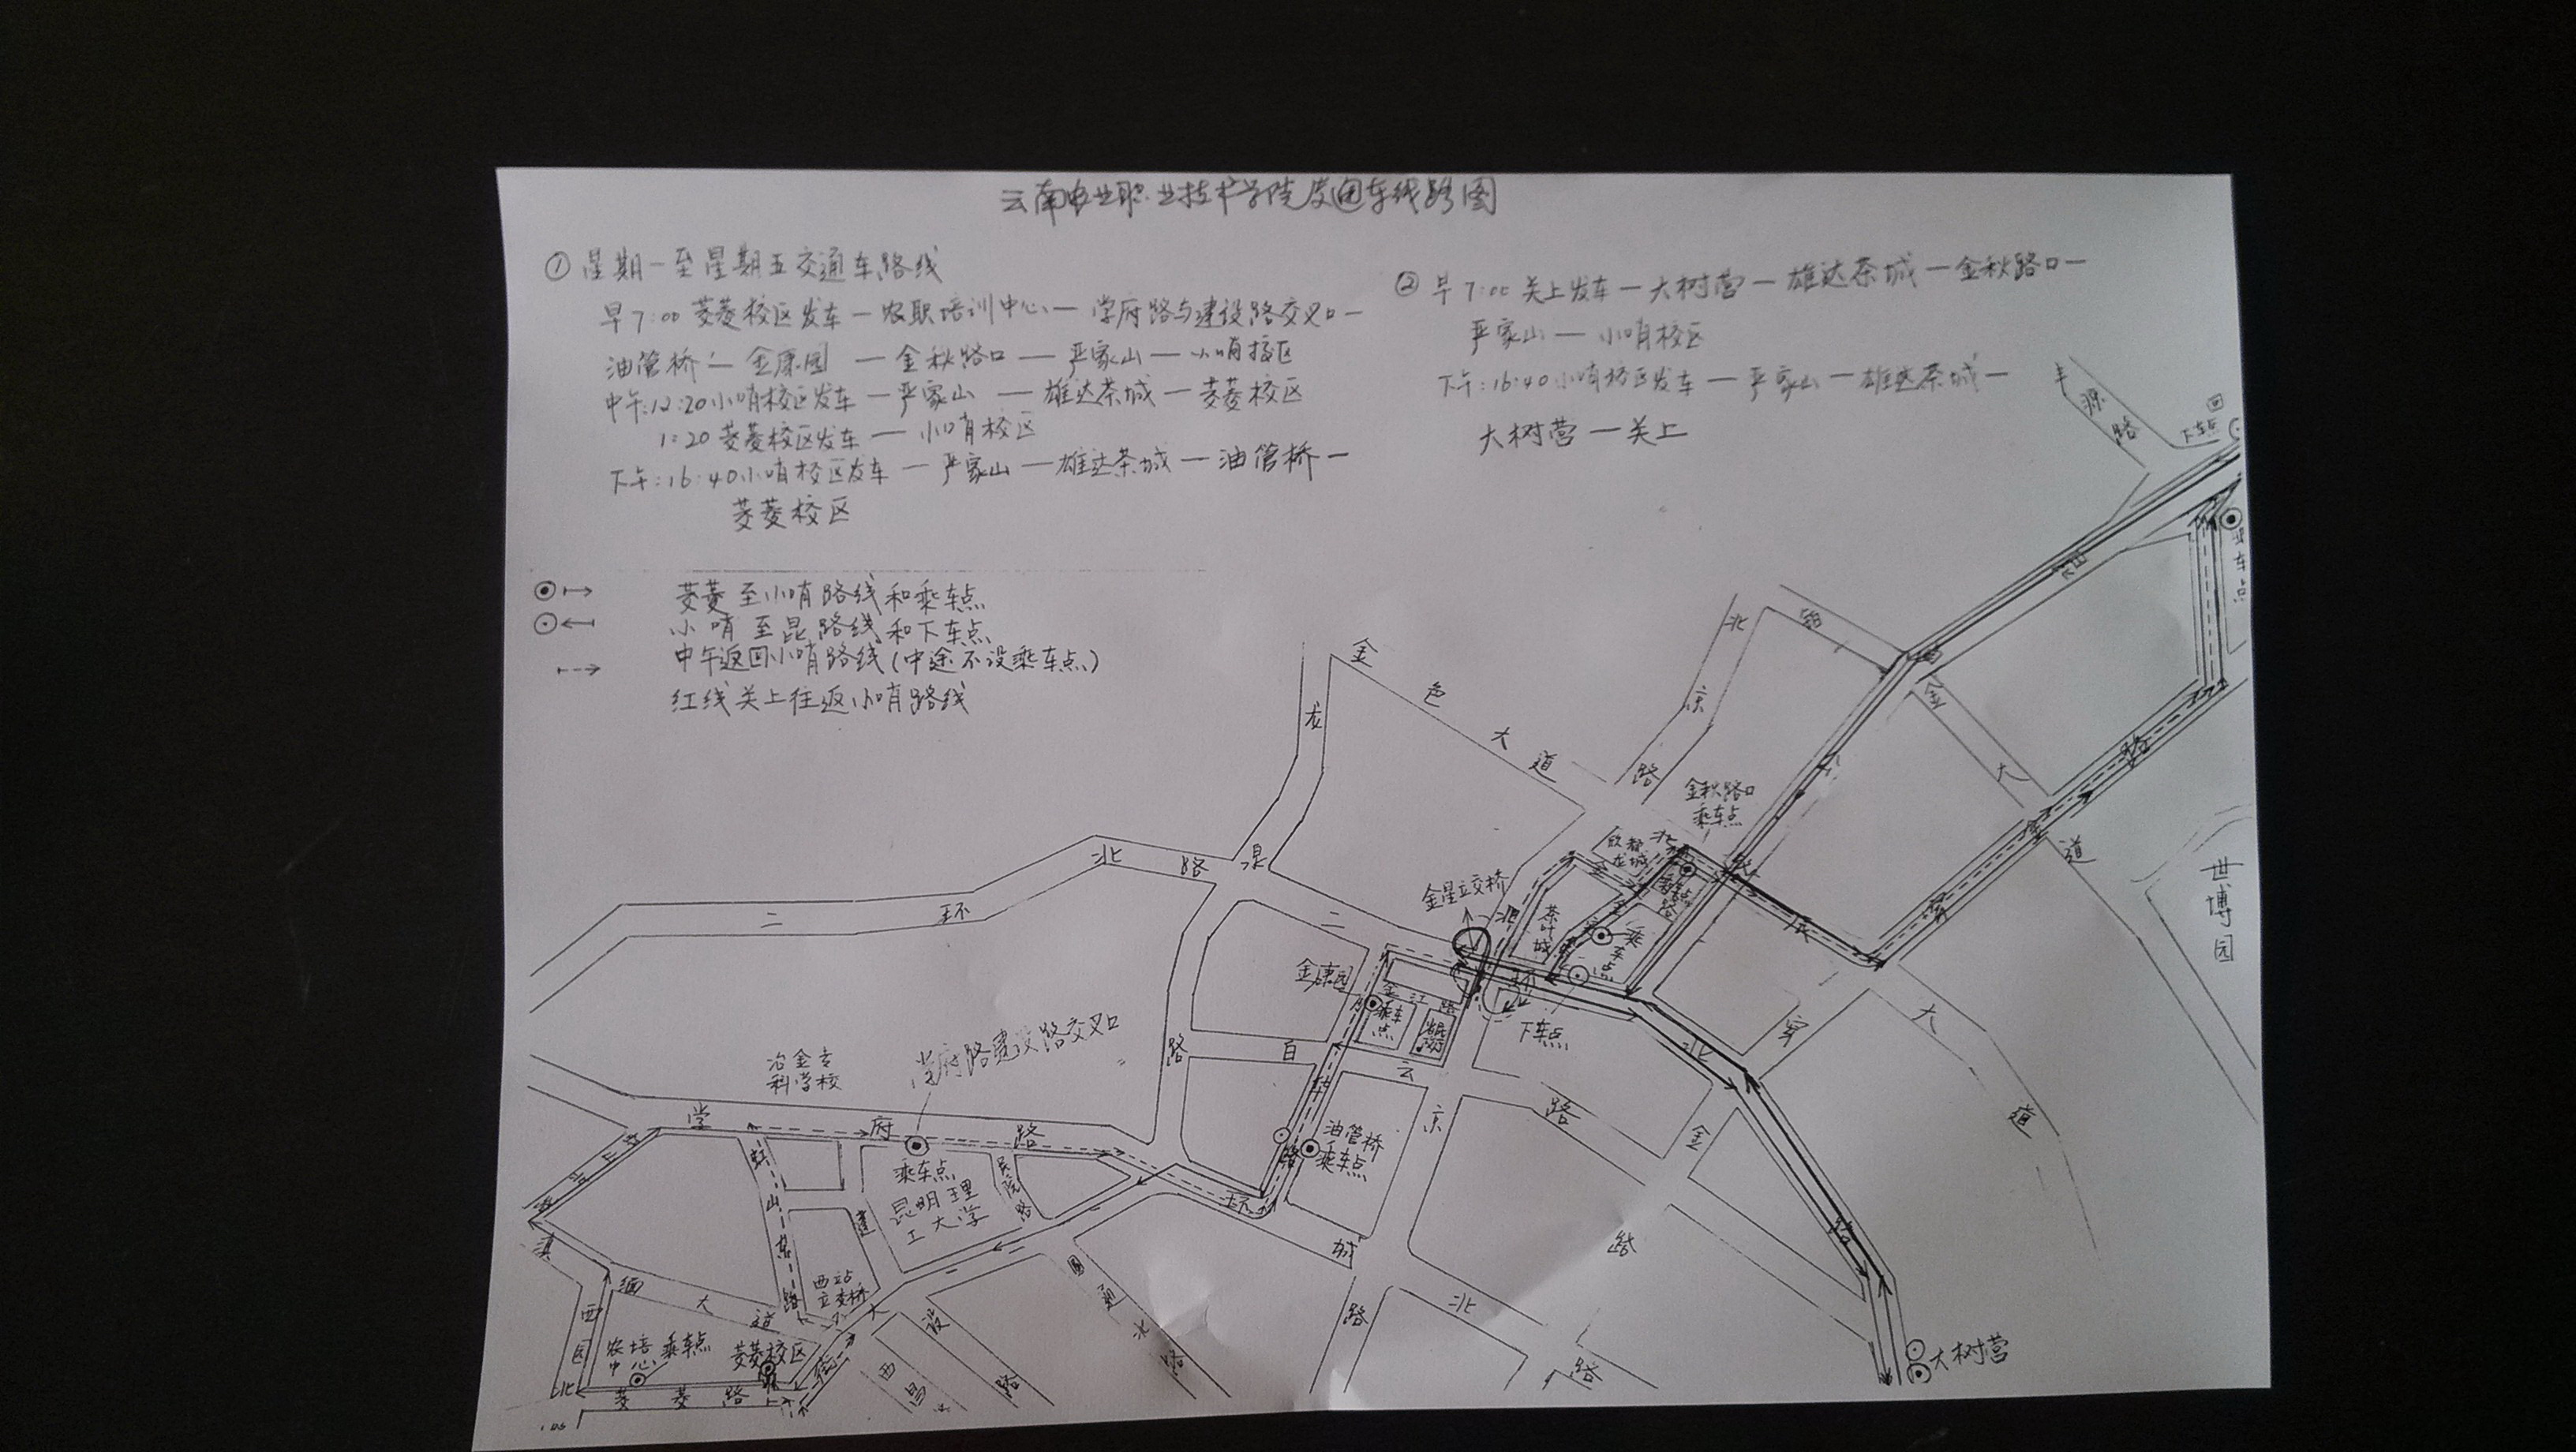 云南农业职业技术学院交通车线路图
① 星期一至星期五交通车路线
早7:00 菱菱校区发车—农职培训中心—学府路与建设路交叉口—
油管桥—金康园—金秋路口—严家山—小哨校区
中午:12:20小哨校区发车—严家山—雄达茶城—菱菱校区
1:20 菱菱校区发车—小哨校区
下午:16:40小哨校区发车—严家山—雄达茶城—油管桥—
菱菱校区
② 早7:00 关上发车—大树营—雄达茶城—金秋路口—
严家山—小哨校区
下午:16:40小哨校区发车—严家山—雄达茶城—
大树营—关上
菱菱至小哨路线和乘车点
小哨至昆路线和下车点
中午返回小哨路线(中途不设乘车点)
红线关上往返小哨路线
源路
回
下车点
乘车点
金色大道
北京路
龙泉路
金秋路口
乘车点
欣都龙城
金星立交桥
茶叶城
乘车点
下车点
世博园
二环北路
金康园
乘车点
金江路
白云路
油管桥
乘车点
学府路建设路交叉口
冶金专
科学校
学府路
乘车点
昆明理
工大学
民院路
虹山东路
建设路
西站
立交桥
滇缅大道
西园北
农培
中心
乘车点
菱菱校区
菱菱路
一二一大街
西昌
圆通
环城北路
金
大道
大树营